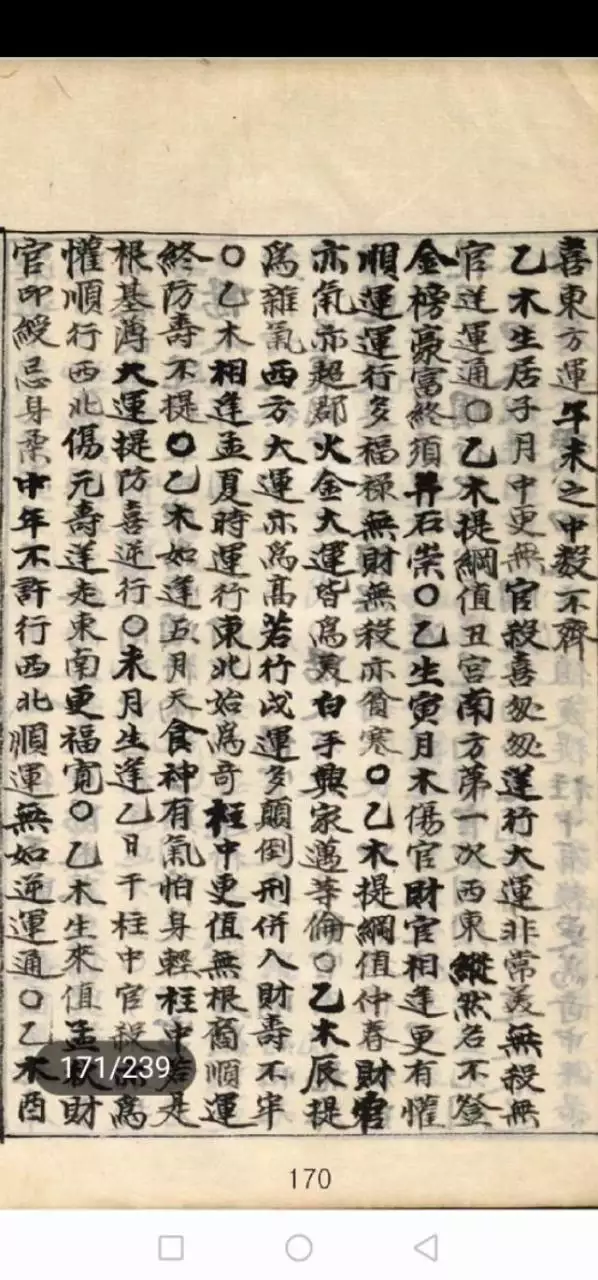 喜東方運午未之中數不齊
乙木生居子月中更無官殺喜匆匆逆行大運非常美無殺無
官逆運通○乙木提綱值丑宮南方第一次西東縱然名不登
金榜豪富終須昇石崇○乙生寅月木傷官財官相逢更有懽
順運運行多福祿無財無殺亦貧寒○乙木提綱值仲春財官
亦氣亦超郡火金大運皆爲美白手興家邁等倫○乙木辰提
爲雜氣西方大運亦爲高若行戌運多顛倒刑併入財壽不牢
○乙木相逢孟夏時運行東北始爲奇柱中更值無根蔔順運
終防壽不提○乙木如逢五月天食神有氣怕身輕柱中若是
根基薄大運提防喜逆行○未月生逢乙日干柱中官殺爲
懽順行西北傷元壽逆走東南更福寬○乙木生來值孟秋財
官印綬忌身柔中年不許行西北順運無如逆運通○乙木酉
171/239
170